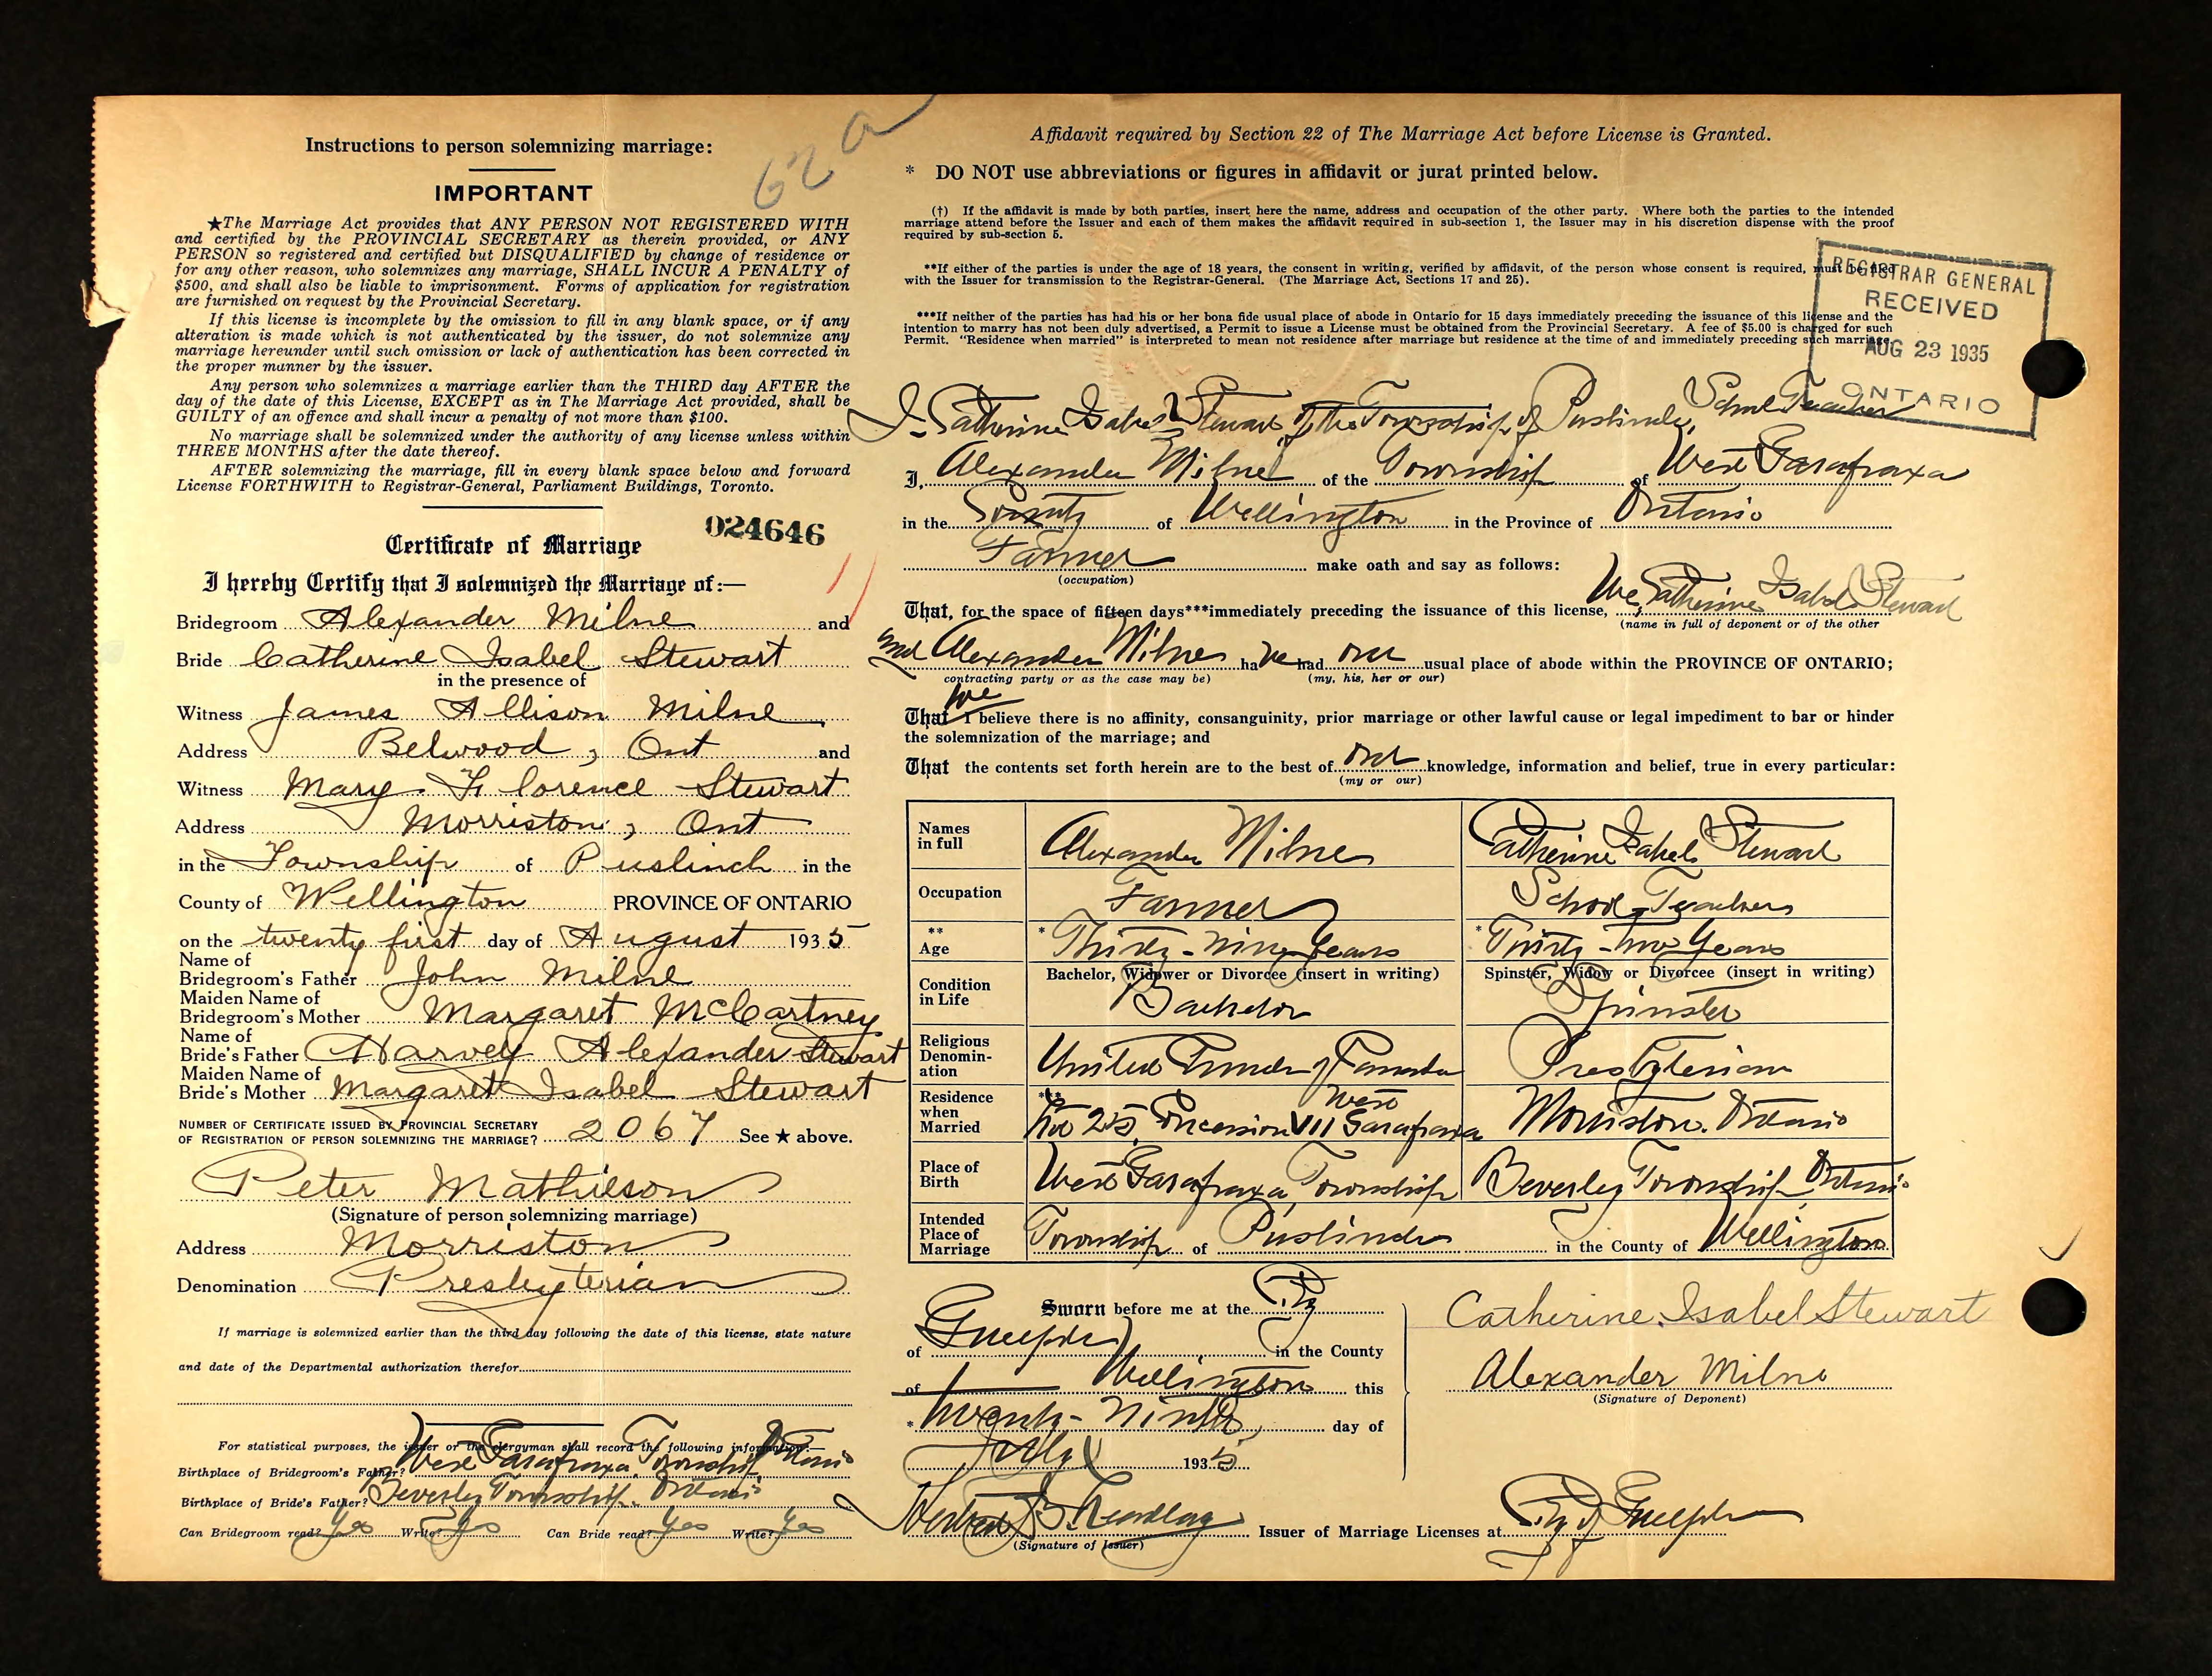 62 a
Instructions to person solemnizing marriage:
IMPORTANT
★The Marriage Act provides that ANY PERSON NOT REGISTERED WITH
and certified by the PROVINCIAL SECRETARY as therein provided, or ANY
PERSON so registered and certified but DISQUALIFIED by change of residence or
for any other reason, who solemnizes any marriage, SHALL INCUR A PENALTY of
$500, and shall also be liable to imprisonment. Forms of application for registration
are furnished on request by the Provincial Secretary.
If this license is incomplete by the omission to fill in any blank space, or if any
alteration is made which is not authenticated by the issuer, do not solemnize any
marriage hereunder until such omission or lack of authentication has been corrected in
the proper manner by the issuer.
Any person who solemnizes a marriage earlier than the THIRD day AFTER the
day of the date of this License, EXCEPT as in The Marriage Act provided, shall be
GUILTY of an offence and shall incur a penalty of not more than $100.
No marriage shall be solemnized under the authority of any license unless within
THREE MONTHS after the date thereof.
AFTER solemnizing the marriage, fill in every blank space below and forward
License FORTHWITH to Registrar-General, Parliament Buildings, Toronto.
024646
Certificate of Marriage
I hereby Certify that I solemnized the Marriage of:—
Bridegroom Alexander Milne and
Bride Catherine Isabel Stewart
in the presence of
Witness James Allison Milne
Address Belwood, Ont and
Witness Mary Florence Stewart
Address Morriston, Ont
in the Township of Puslinch in the
County of Wellington PROVINCE OF ONTARIO
on the twenty first day of August 1935
Name of
Bridegroom's Father John Milne
Maiden Name of
Bridegroom's Mother Margaret McCartney
Name of
Bride's Father Harvey Alexander Stewart
Maiden Name of
Bride's Mother Margaret Isabel Stewart
NUMBER OF CERTIFICATE ISSUED BY PROVINCIAL SECRETARY
OF REGISTRATION OF PERSON SOLEMNIZING THE MARRIAGE? 2067 See ★ above.
Peter Mathieson
(Signature of person solemnizing marriage)
Address Morriston
Denomination Presbyterian
If marriage is solemnized earlier than the third day following the date of this license, state nature
and date of the Departmental authorization therefor
For statistical purposes, the issuer or the clergyman shall record the following information:—
Birthplace of Bridegroom's Father? West Garafraxa Township Ontario
Birthplace of Bride's Father? Beverley Township Ontario
Can Bridegroom read? Yes Write? Yes Can Bride read? Yes Write? Yes
Affidavit required by Section 22 of The Marriage Act before License is Granted.
* DO NOT use abbreviations or figures in affidavit or jurat printed below.
(†) If the affidavit is made by both parties, insert here the name, address and occupation of the other party. Where both the parties to the intended
marriage attend before the Issuer and each of them makes the affidavit required in sub-section 1, the Issuer may in his discretion dispense with the proof
required by sub-section 5.
**If either of the parties is under the age of 18 years, the consent in writing, verified by affidavit, of the person whose consent is required, must be filed
with the Issuer for transmission to the Registrar-General. (The Marriage Act, Sections 17 and 25).
***If neither of the parties has had his or her bona fide usual place of abode in Ontario for 15 days immediately preceding the issuance of this license and the
intention to marry has not been duly advertised, a Permit to issue a License must be obtained from the Provincial Secretary. A fee of $5.00 is charged for such
Permit. "Residence when married" is interpreted to mean not residence after marriage but residence at the time of and immediately preceding such marriage.
REGISTRAR GENERAL
RECEIVED
AUG 23 1935
ONTARIO
I, Catherine Isabel Stewart of the Township of Puslinch, School Teacher
I, Alexander Milne of the Township of West Garafraxa
in the County of Wellington in the Province of Ontario
Farmer make oath and say as follows:
(occupation)
That, for the space of fifteen days***immediately preceding the issuance of this license, We, Catherine Isabel Stewart
(name in full of deponent or of the other
and Alexander Milne have had our usual place of abode within the PROVINCE OF ONTARIO;
contracting party or as the case may be) (my, his, her or our)
we
That I believe there is no affinity, consanguinity, prior marriage or other lawful cause or legal impediment to bar or hinder
the solemnization of the marriage; and
That the contents set forth herein are to the best of our knowledge, information and belief, true in every particular:
(my or our)
Names in full Alexander Milne Catherine Isabel Stewart
Occupation Farmer School Teacher
** Age * Thirty-nine Years * Thirty-two Years
Condition in Life Bachelor, Widower or Divorcee (insert in writing) Spinster, Widow or Divorcee (insert in writing)
Bachelor Spinster
Religious Denomination United Church of Canada Presbyterian
Residence when Married *** Lot 25 Concession VII West Garafraxa Morriston. Ontario
Place of Birth West Garafraxa Township Beverley Township Ontario
Intended Place of Marriage Township of Puslinch in the County of Wellington
Sworn before me at the City
of Guelph in the County
of Wellington this
* twenty-ninth day of
July 1935
Catherine Isabel Stewart
Alexander Milne
(Signature of Deponent)
Herbert B. Issuer of Marriage Licenses at City of Guelph
(Signature of Issuer)